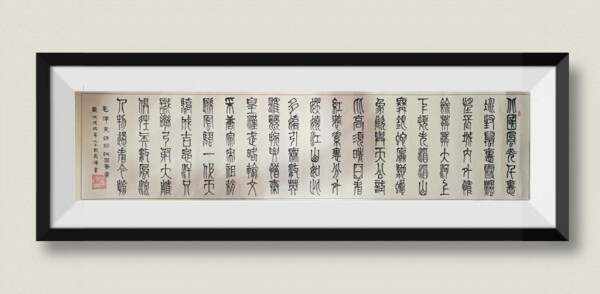 北國風光千里
冰封萬里雪飄
望長城內外惟
餘莽莽大河上
下頓失滔滔山
舞銀蛇原馳蠟
象欲與天公試
比高須晴日看
紅裝素裹分外
妖嬈江山如此
多嬌引無數英
雄競折腰惜秦
皇漢武略輸文
采唐宗宋祖稍
遜風騷一代天
驕成吉思汗只
識彎弓射大雕
俱往矣數風流
人物還看今朝
毛澤東詩詞沁園春雪